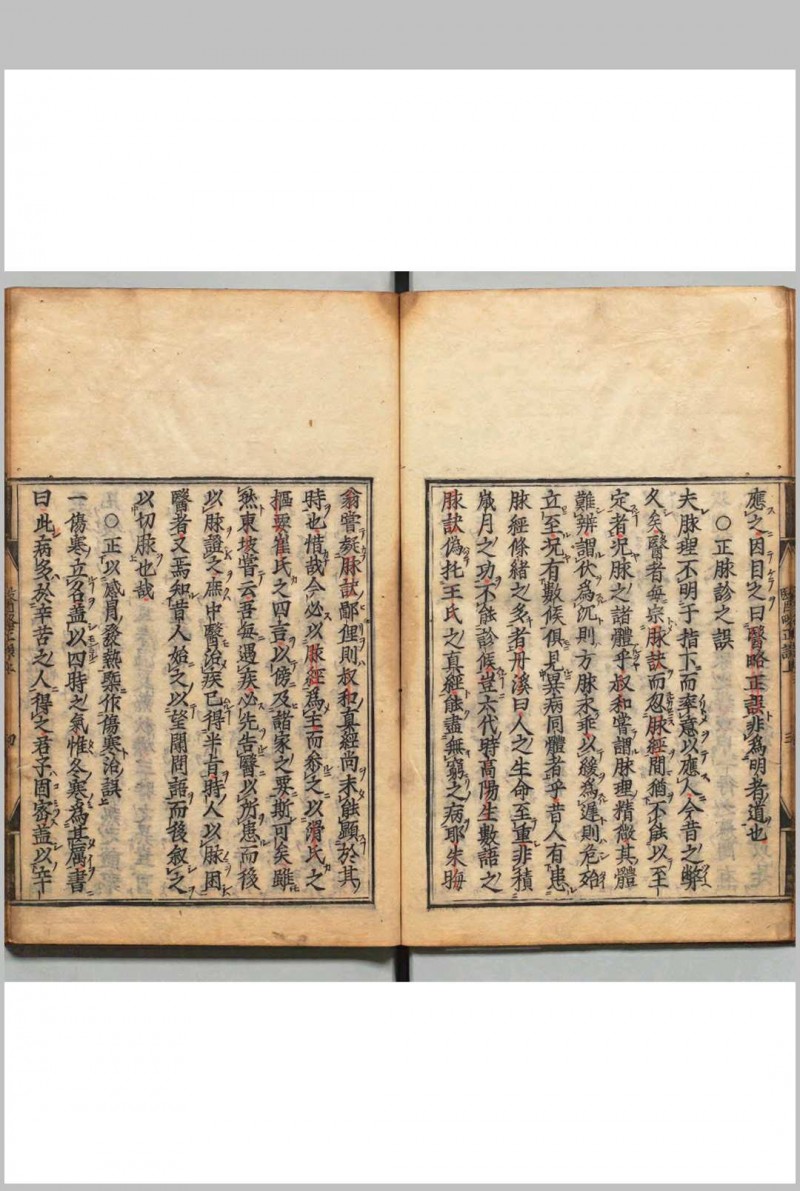 應之因目之曰醫略正誤非為明者道也
〇正脉診之誤
夫脉理不明于指下而率意以應人今昔之弊
久矣醫者每宗脉訣而忽脉經間猶不能以至
定者況脉之諸體乎叔和嘗謂脉理精微其體
難辨謂伏為沉則方脉永乖以緩為遲則危殆
立至況有數候俱見異病同體者乎昔人有患
脉經條緒之多者丹溪曰人之生命至重非積
歲月之功不能診候豈六代時高陽生數語之
脉訣偽托王氏之真經能盡無窮之病耶朱晦
翁嘗疑脉訣鄙俚則叔和真經尚未能顯於其
時也惜哉今必以脉經為主而參之以滑氏之
樞要崔氏之四言以傍及諸家之要斯可矣雖
然東坡嘗云吾每遇疾必先告醫以所患而後
以脉證之庶中醫治疾已得半肯時人以脉困
醫者又焉知昔人始之以望聞問語而後叙之
以切脉也哉
〇正以感冒發熱槩作傷寒治誤
一傷寒立名盖以四時之氣惟冬寒為甚厲書
曰此病多於辛苦之人得之君子固密盖以辛